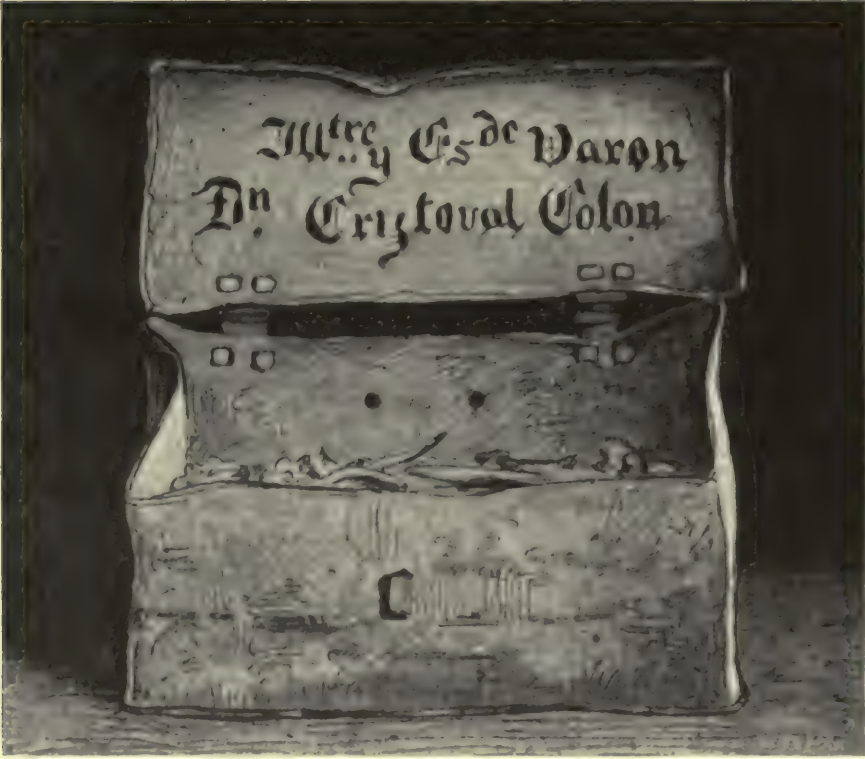 Illtre. y Esde Varon
Dn. Criztoval Colon
C